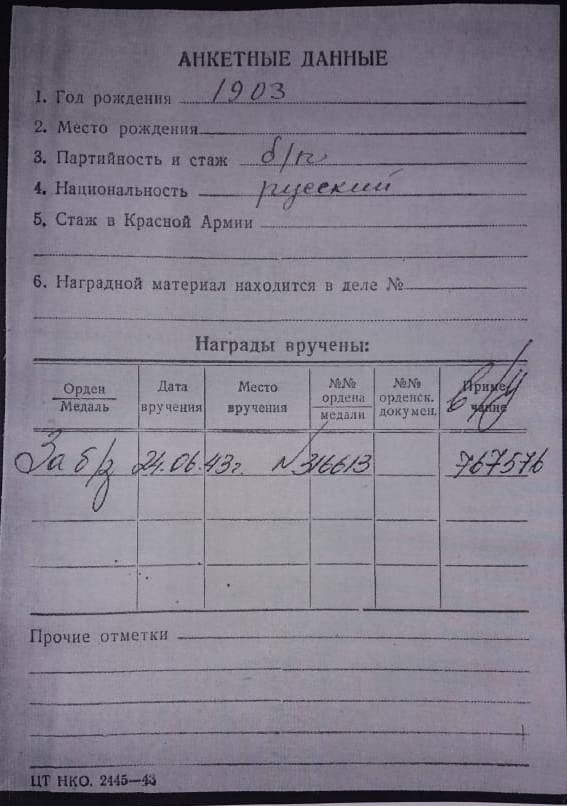 АНКЕТНЫЕ ДАННЫЕ
1. Год рождения 1903
2. Место рождения
3. Партийность и стаж б/п
4. Национальность русский
5. Стаж в Красной Армии
6. Наградной материал находится в деле №
Награды вручены:
Орден Медаль
Дата вручения
Место вручения
№№ ордена медали
№№ орденск. докумен.
Примечание
в/у
За б/з 24.06.43г. N 316613 767576
Прочие отметки
ЦТ НКО. 2445—43